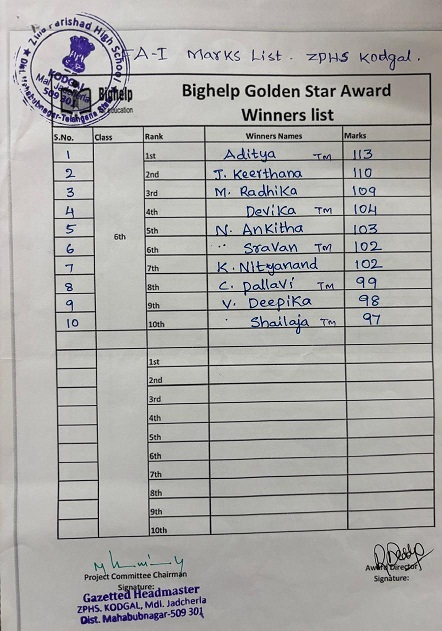 Zilla Parishad High School
KODGAL
Mdl. Jadcherla
509 301
Dist. Mahabubnagar-Telangana State
FA-I Marks List. ZPHS Kodgal.
Bighelp
Education
Bighelp Golden Star Award
Winners list
S.No. Class Rank Winners Names Marks
1 1st Aditya TM 113
2 2nd J. Keerthana 110
3 3rd M. Radhika 109
4 4th Devika TM 104
5 5th N. Ankitha 103
6th
6 6th Sravan TM 102
7 7th K. Nityanand 102
8 8th C. Pallavi TM 99
9 9th V. Deepika 98
10 10th Shailaja TM 97
1st
2nd
3rd
4th
5th
6th
7th
8th
9th
10th
Project Committee Chairman
Signature:
Award Director
Signature:
Gazetted Headmaster
ZPHS. KODGAL, Mdl. Jadcherla
Dist. Mahabubnagar-509 301